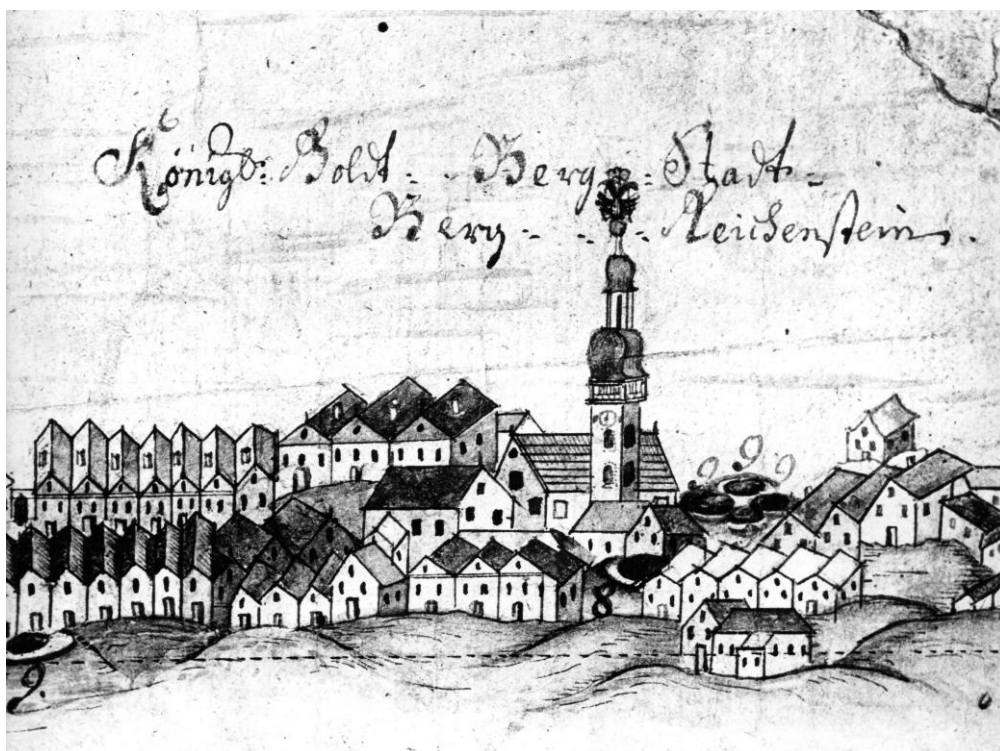 Königl: Goldt - Berg - Stadt -
Berg - - - Reichenstein.
9 9 9
8
9.